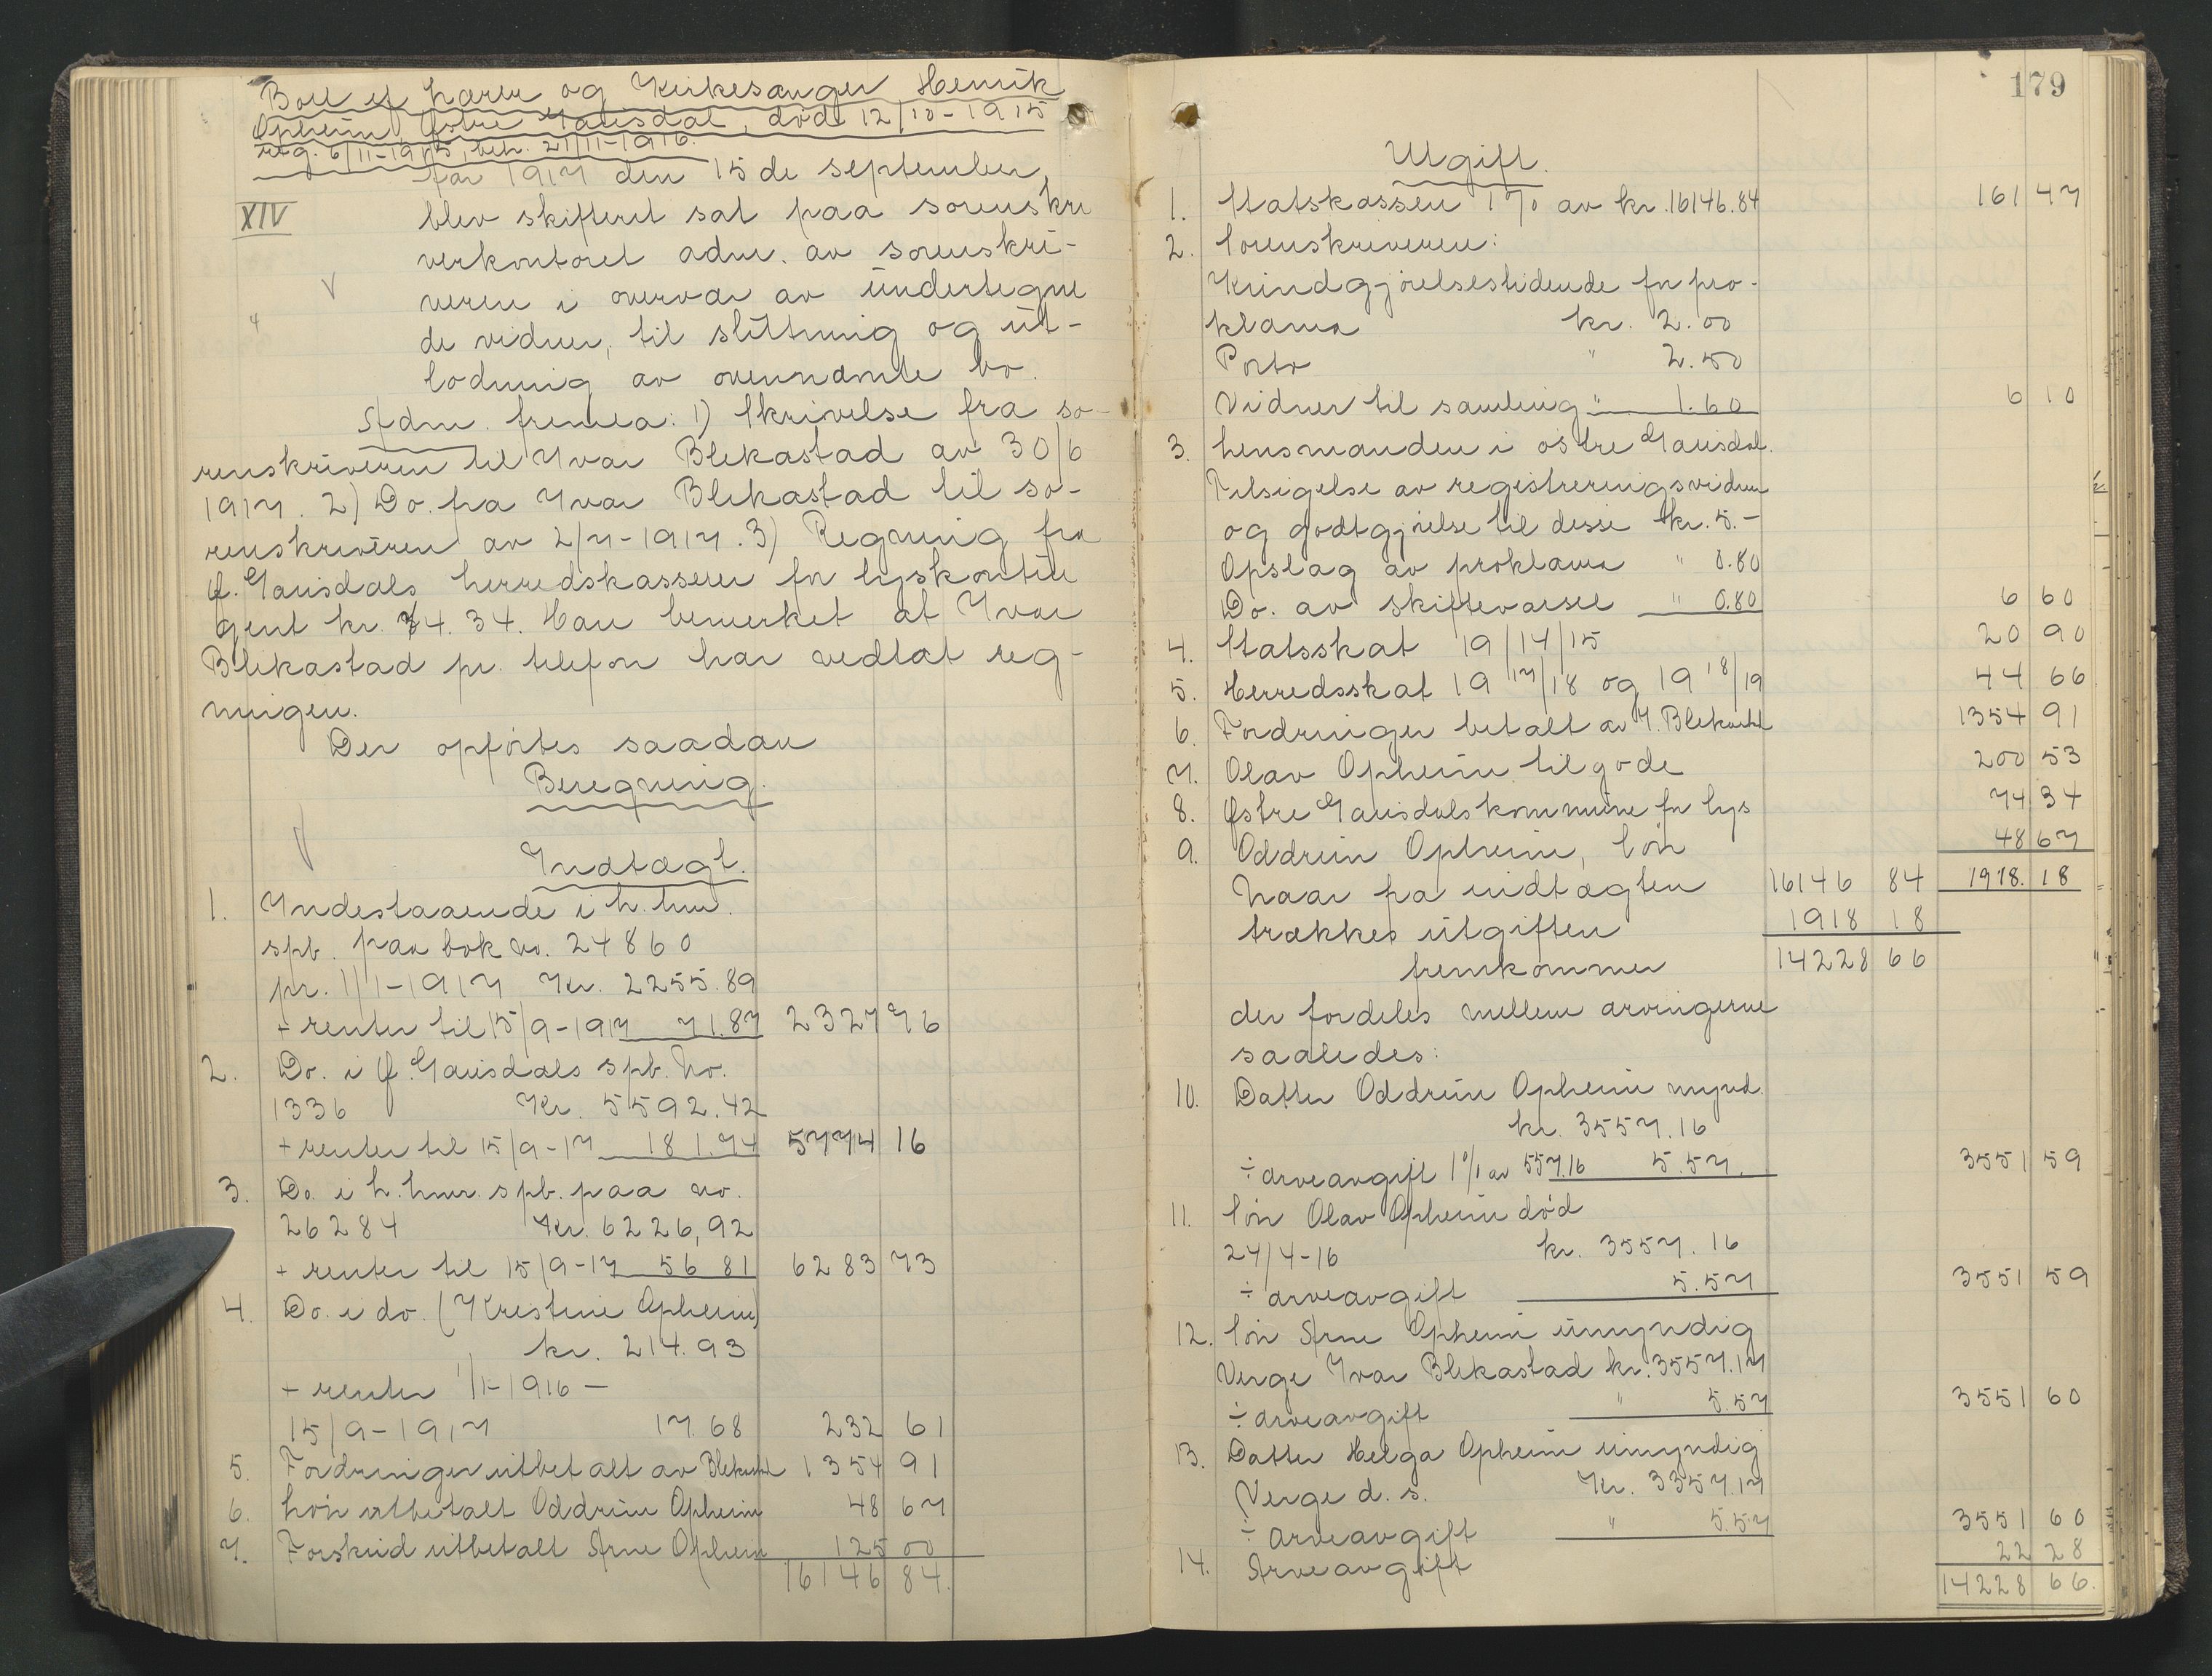 Boet ef. Lærer og Kirkesanger Henrik
Opheim Østre Gausdal, død 12/10-1915
reg. 6/11-1915, beh. 21/11-1916.
Aar 1917 den 15de september
XIV
blev skifteret sat paa sorenskri
verkontoret adm. av sorenskri-
veren i overvær av undertegne
de vidner, til slutning og ut-
lodning av ovennævnte bo.
Adm. fremla: 1) Skrivelse fra so-
renskriveren til Ivar Blekastad av 30/6
1917. 2) Do. fra Ivar Blekastad til so-
renskriveren av 2/7-1917. 3) Regning fra
Ø. Gausdals herredskasserer for lyskontin
gent kr. 74.34. Han bemerket at Ivar
Blekastad pr. telefon har vedtat reg-
ningen.
Der opførtes saadan
Beregning.
Indtægt.
1. Indestaaende i L.hmr.
spb. paa bok no. 24860
pr. 1/1-1917 Kr. 2255.89
+ renter til 15/9-1917 71.87 2327 76
2. Do. i Ø. Gausdals spb. No.
1336 Kr. 5592.42
+ renter til 15/9-17 181.74 5774 16
3. Do. i L.hmr. spb. paa no.
26284 Kr. 6226,92
+ renter til 15/9-17 56 81 6283 73
4. Do. i do. (Kristine Opheim)
kr. 214.93
+ renter 1/1-1916 -
15/9-1917 17.68 232 61
5. Fordringer utbetalt av Blekastad 1354 91
6. Løn utbetalt Oddrun Opheim 48 67
7. Forskud utbetalt Arne Opheim 125 00
16146 84.
179
Utgift.
1. Statskassen 1% av kr. 16146.84 161 47
2. Sorenskriveren:
Kundgjørelsestidende for pro-
klama kr. 2.00
Porto " 2.50
Vidner til samling " 1.60 6 10
3. Lensmanden i østre Gausdal.
Tilsigelse av registreringsvidner
og godtgjørelse til disse kr. 5.-
Opslag av proklama " 0.80
Do. av skiftevarsel " 0.80 6 60
4. Statsskat 19/14/15 20 90
5. Herredsskat 19 17/18 og 19 18/19 44 66
6. Fordringer betalt av I. Blekastad 1354 91
7. Olav Opheim tilgode 200 53
8. Østre Gausdals kommune for lys 74 34
9. Oddrun Opheim, løn 48 67
Naar fra indtægten 16146 84 1918. 18
trækkes utgiften 1918 18
fremkommer 14228 66
der fordeles mellem arvingerne
saaledes:
10. Datter Oddrun Opheim mynd.
kr. 3557.16
÷ arveavgift 1% av 557.16 5.57. 3551 59
11. Søn Olav Opheim død
24/4-16 kr. 3557.16
÷ arveavgift 5.57 3551 59
12. Søn Arne Opheim umyndig
Verge Ivar Blekastad kr. 3557.17
÷ arveavgift " 5.57 3551 60
13. Datter Helga Opheim umyndig
Verge d. s. Kr. 3357.17
÷ arveavgift " 5.57 3551 60
14. Arveavgift 22 28
14228 66.